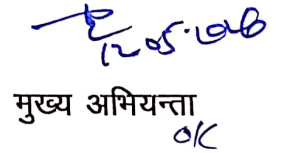 12.05.2026
मुख्य अभियन्ता
OK